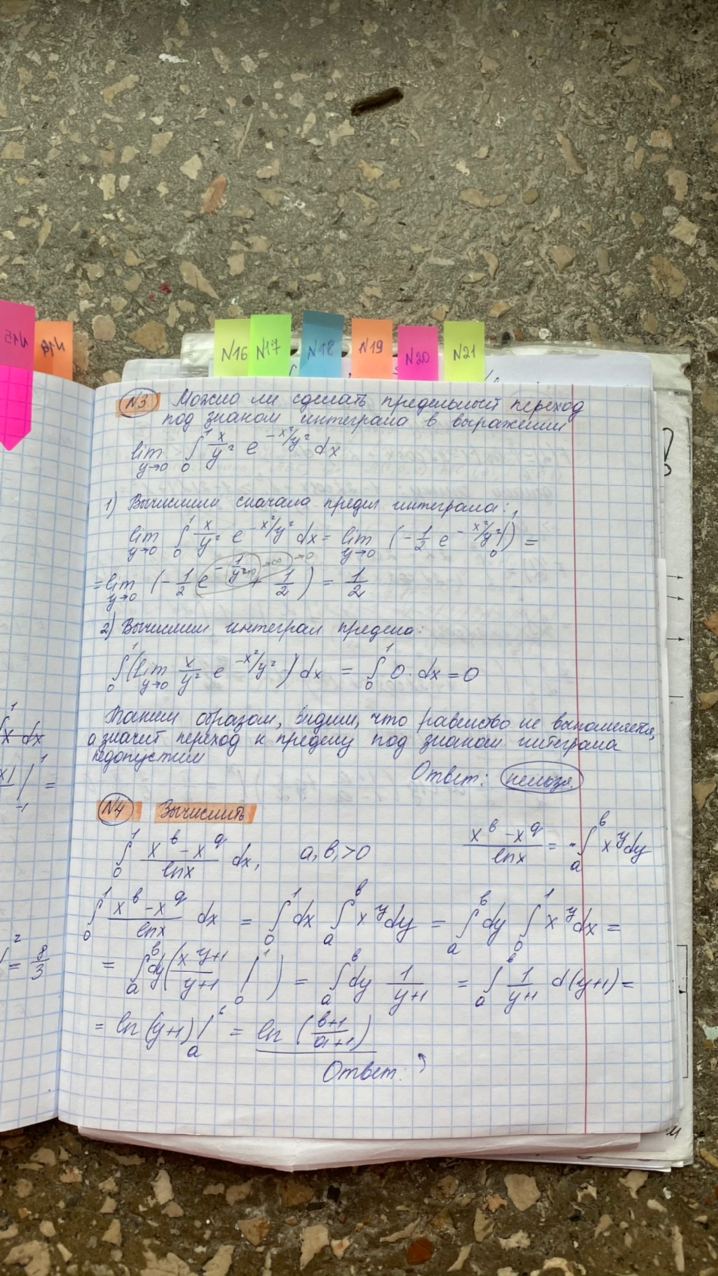 N15
N14
N16
N17
N18
N19
N20
N21
N3 Можно ли сделать предельный переход
под знаком интеграла в выражении
lim_{y→0} ∫_0^1 x/y² e^{-x²/y²} dx
1) Вычислим сначала предел интеграла:
lim_{y→0} ∫_0^1 x/y² e^{-x²/y²} dx = lim_{y→0} (-1/2 e^{-x²/y²})|_0^1 =
= lim_{y→0} (-1/2 e^{-1/y²} + 1/2) = 1/2
2) Вычислим интеграл предела:
∫_0^1 (lim_{y→0} x/y² e^{-x²/y²}) dx = ∫_0^1 0·dx = 0
Таким образом, видим, что равенство не выполняется,
а значит переход к пределу под знаком интеграла
недопустим
Ответ: нельзя.
N4 Вычислить
∫_0^1 (x^b - x^a)/(ln x) dx, a, b, >0
(x^b - x^a)/(ln x) = ∫_a^b x^y dy
∫_0^1 (x^b - x^a)/(ln x) dx = ∫_0^1 dx ∫_a^b x^y dy = ∫_a^b dy ∫_0^1 x^y dx =
= ∫_a^b dy (x^{y+1}/(y+1) |_0^1) = ∫_a^b dy 1/(y+1) = ∫_a^b 1/(y+1) d(y+1) =
= ln(y+1) |_a^b = ln((b+1)/(a+1))
Ответ:
x dx
= 8/3